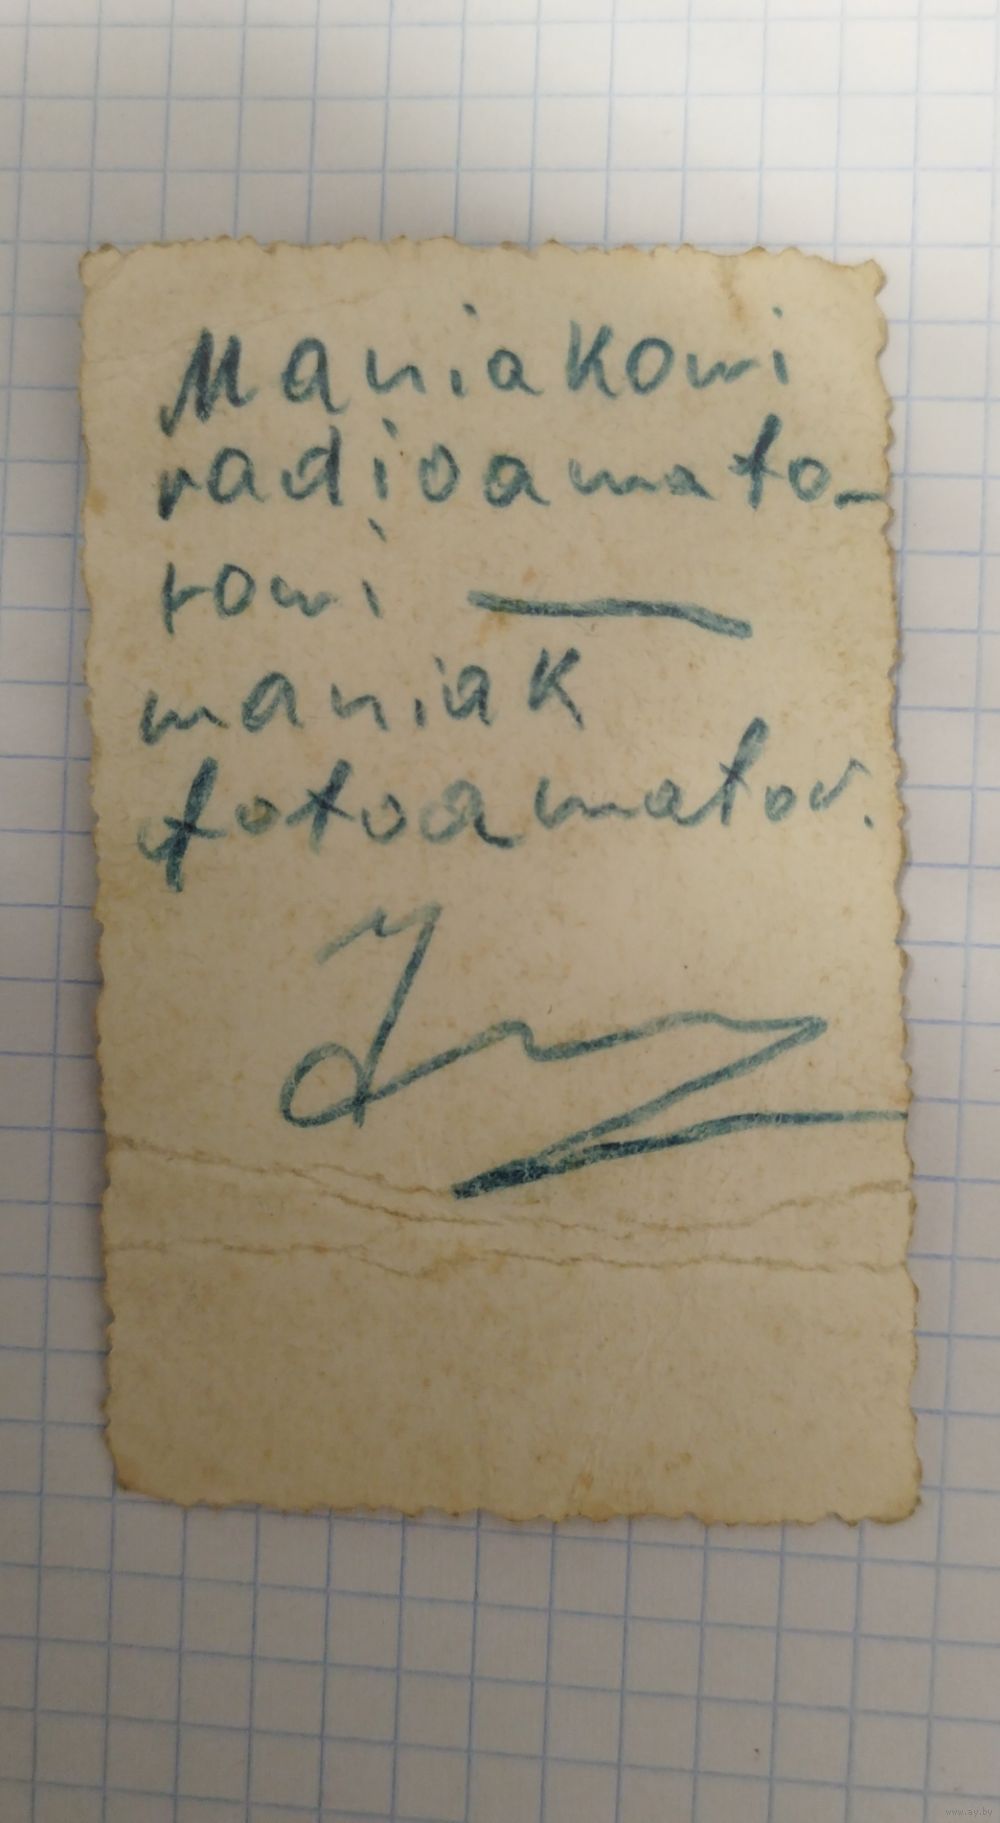 Maniakowi
radioamato-
rowi —
maniak
fotoamator.
www.ay.by